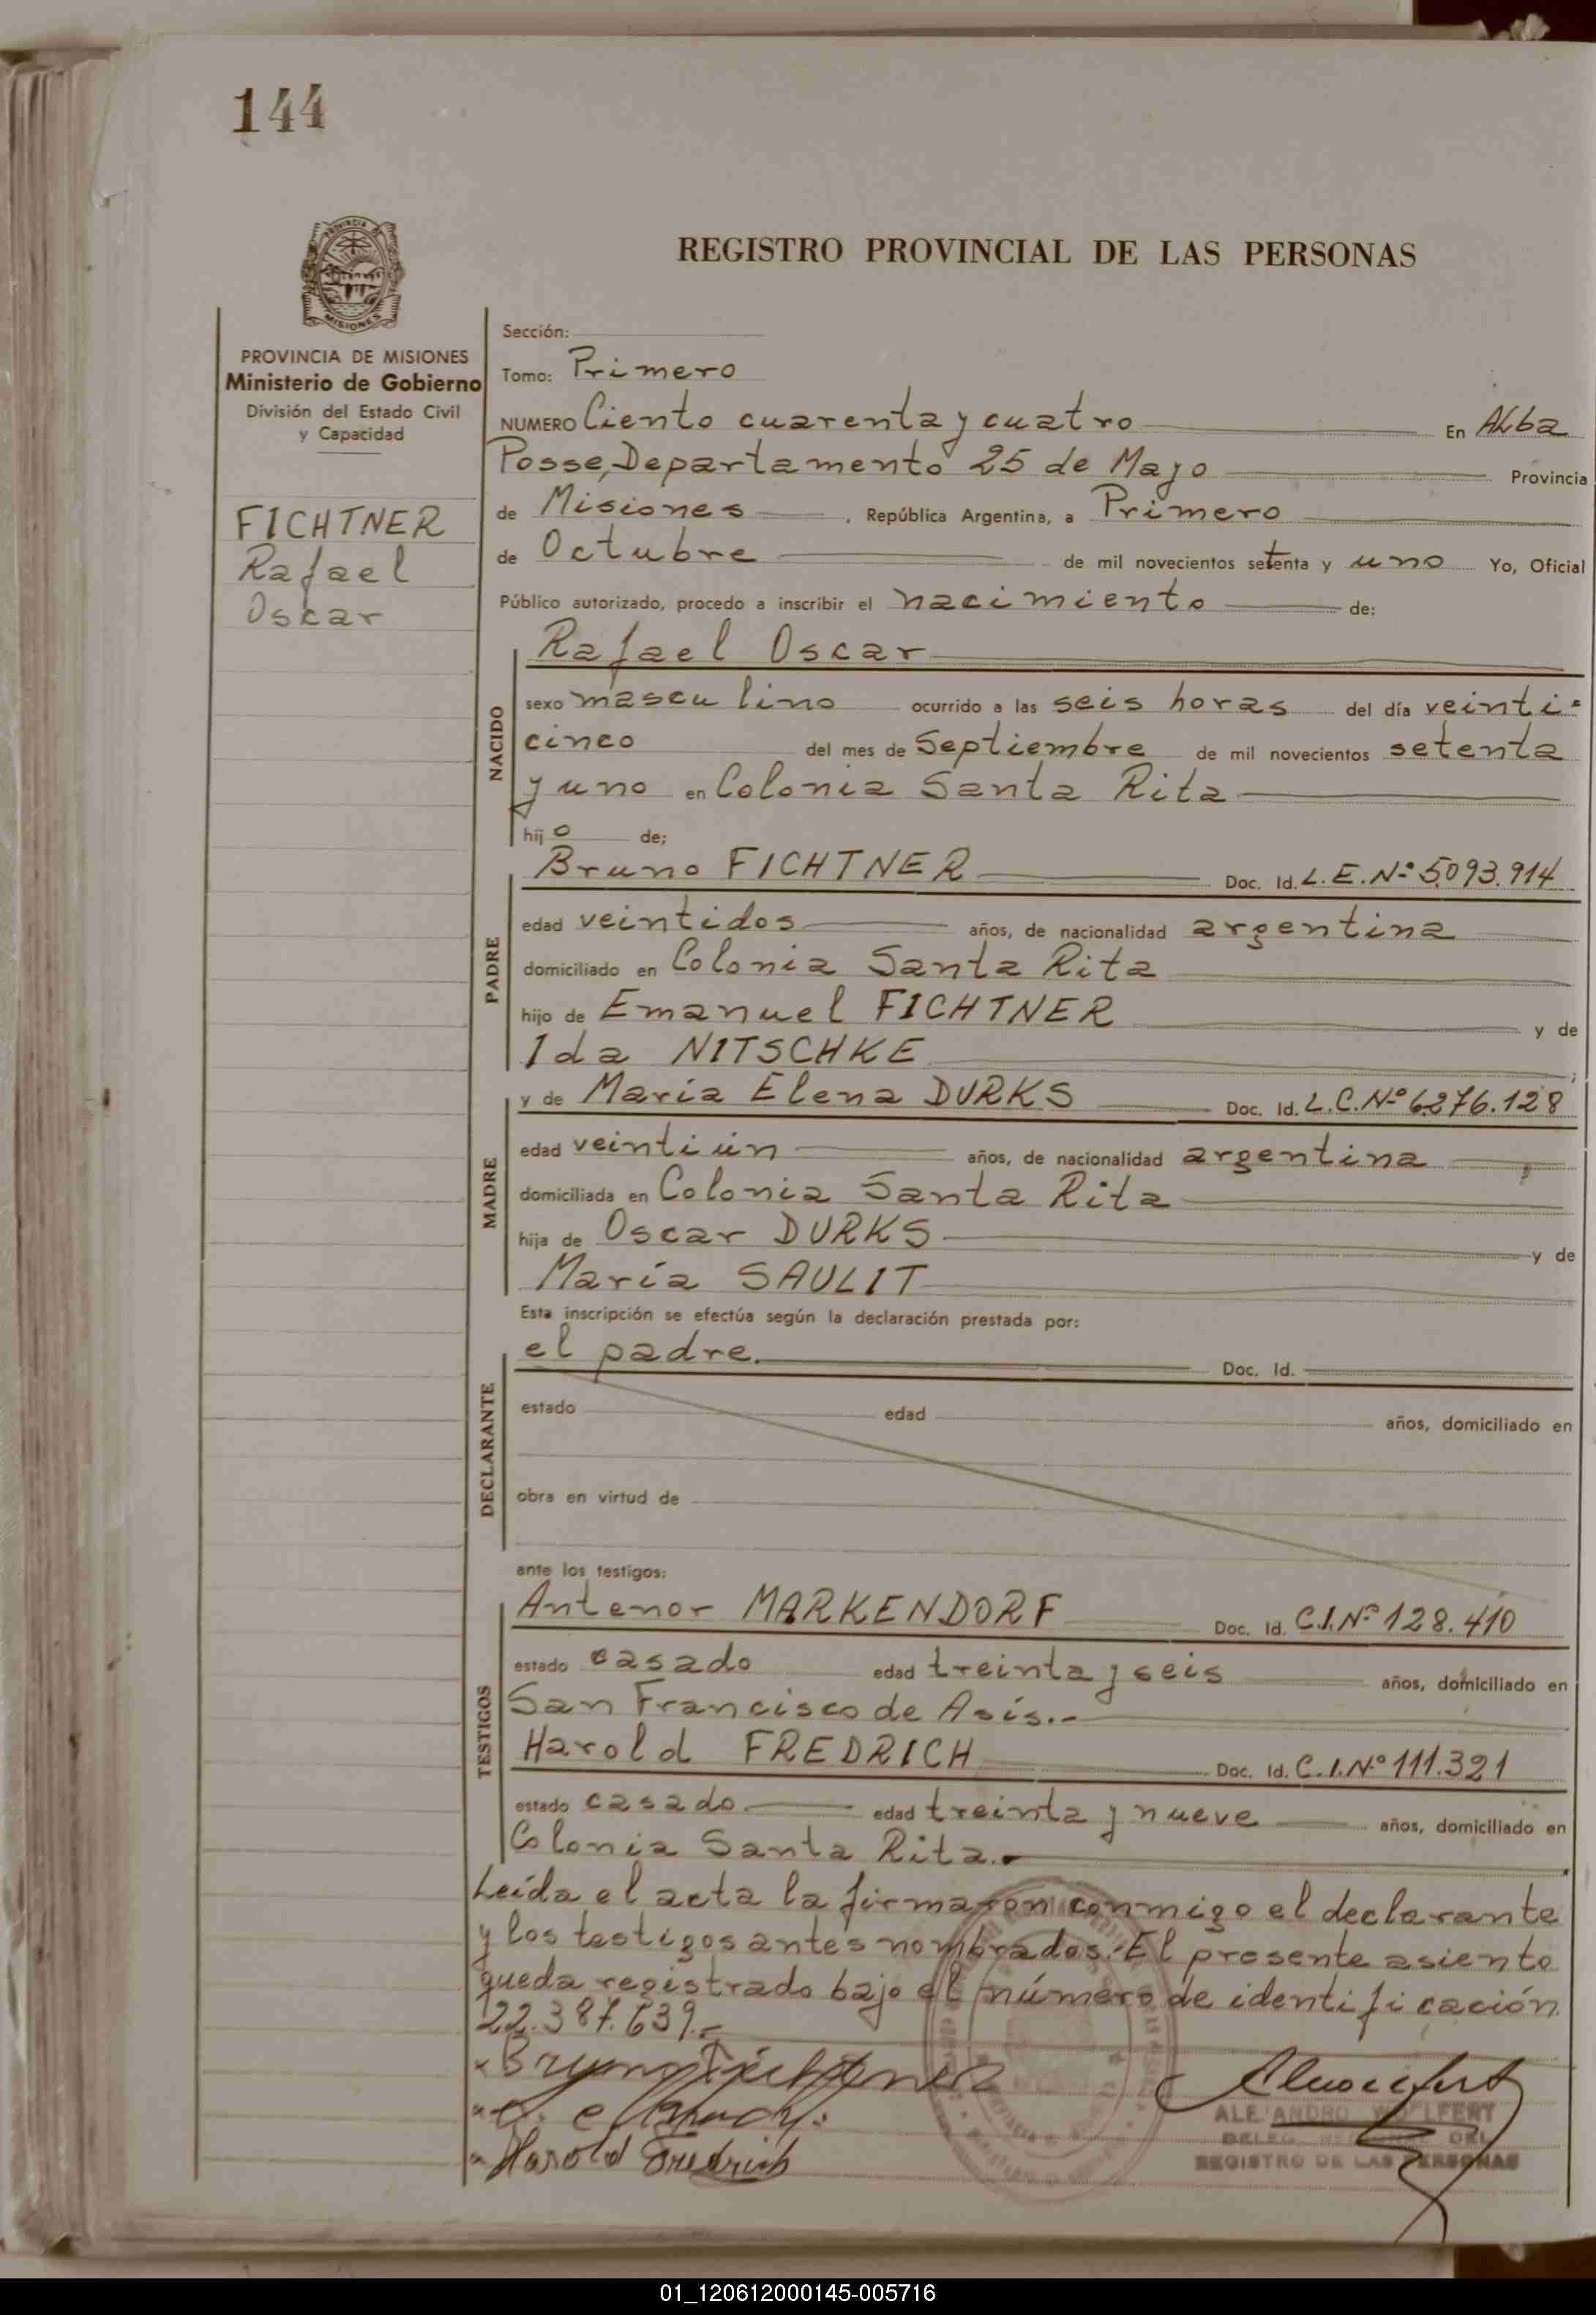 144
PROVINCIA DE MISIONES
Ministerio de Gobierno
División del Estado Civil
y Capacidad
FICHTNER
Rafael
Oscar
REGISTRO PROVINCIAL DE LAS PERSONAS
Sección:
Tomo: Primero
NUMERO Ciento cuarenta y cuatro En Alba
Posse, Departamento 25 de Mayo Provincia
de Misiones, República Argentina, a Primero
de Octubre de mil novecientos setenta y uno Yo, Oficial
Público autorizado, procedo a inscribir el nacimiento de:
NACIDO
Rafael Oscar
sexo masculino ocurrido a las seis horas del día veinti-
cinco del mes de Septiembre de mil novecientos setenta
y uno en Colonia Santa Rita
hijo de;
PADRE
Bruno FICHTNER Doc. Id. L.E.Nº 5.093.914
edad veintidos años, de nacionalidad argentina
domiciliado en Colonia Santa Rita
hijo de Emanuel FICHTNER y de
Ida NITSCHKE;
MADRE
y de María Elena DURKS Doc. Id. L.C.Nº 6.276.128
edad veintiún años, de nacionalidad argentina
domiciliada en Colonia Santa Rita
hija de Oscar DURKS y de
María SAULIT
Esta inscripción se efectúa según la declaración prestada por:
DECLARANTE
el padre. Doc. Id.
estado edad años, domiciliado en
obra en virtud de
ante los testigos:
TESTIGOS
Antenor MARKENDORF Doc. Id. C.I.Nº 128.410
estado casado edad treinta y seis años, domiciliado en
San Francisco de Asís.-
Harold FREDRICH Doc. Id. C.I.Nº 111.321
estado casado edad treinta y nueve años, domiciliado en
Colonia Santa Rita.-
Leída el acta la firmaron conmigo el declarante
y los testigos antes nombrados.-El presente asiento
queda registrado bajo el número de identificación
22.387.639.-
Bruno Fichtner
Harold Fredrich
ALEJANDRO WOLFERT
DEL
REGISTRO DE LAS PERSONAS
01_120612000145-005716